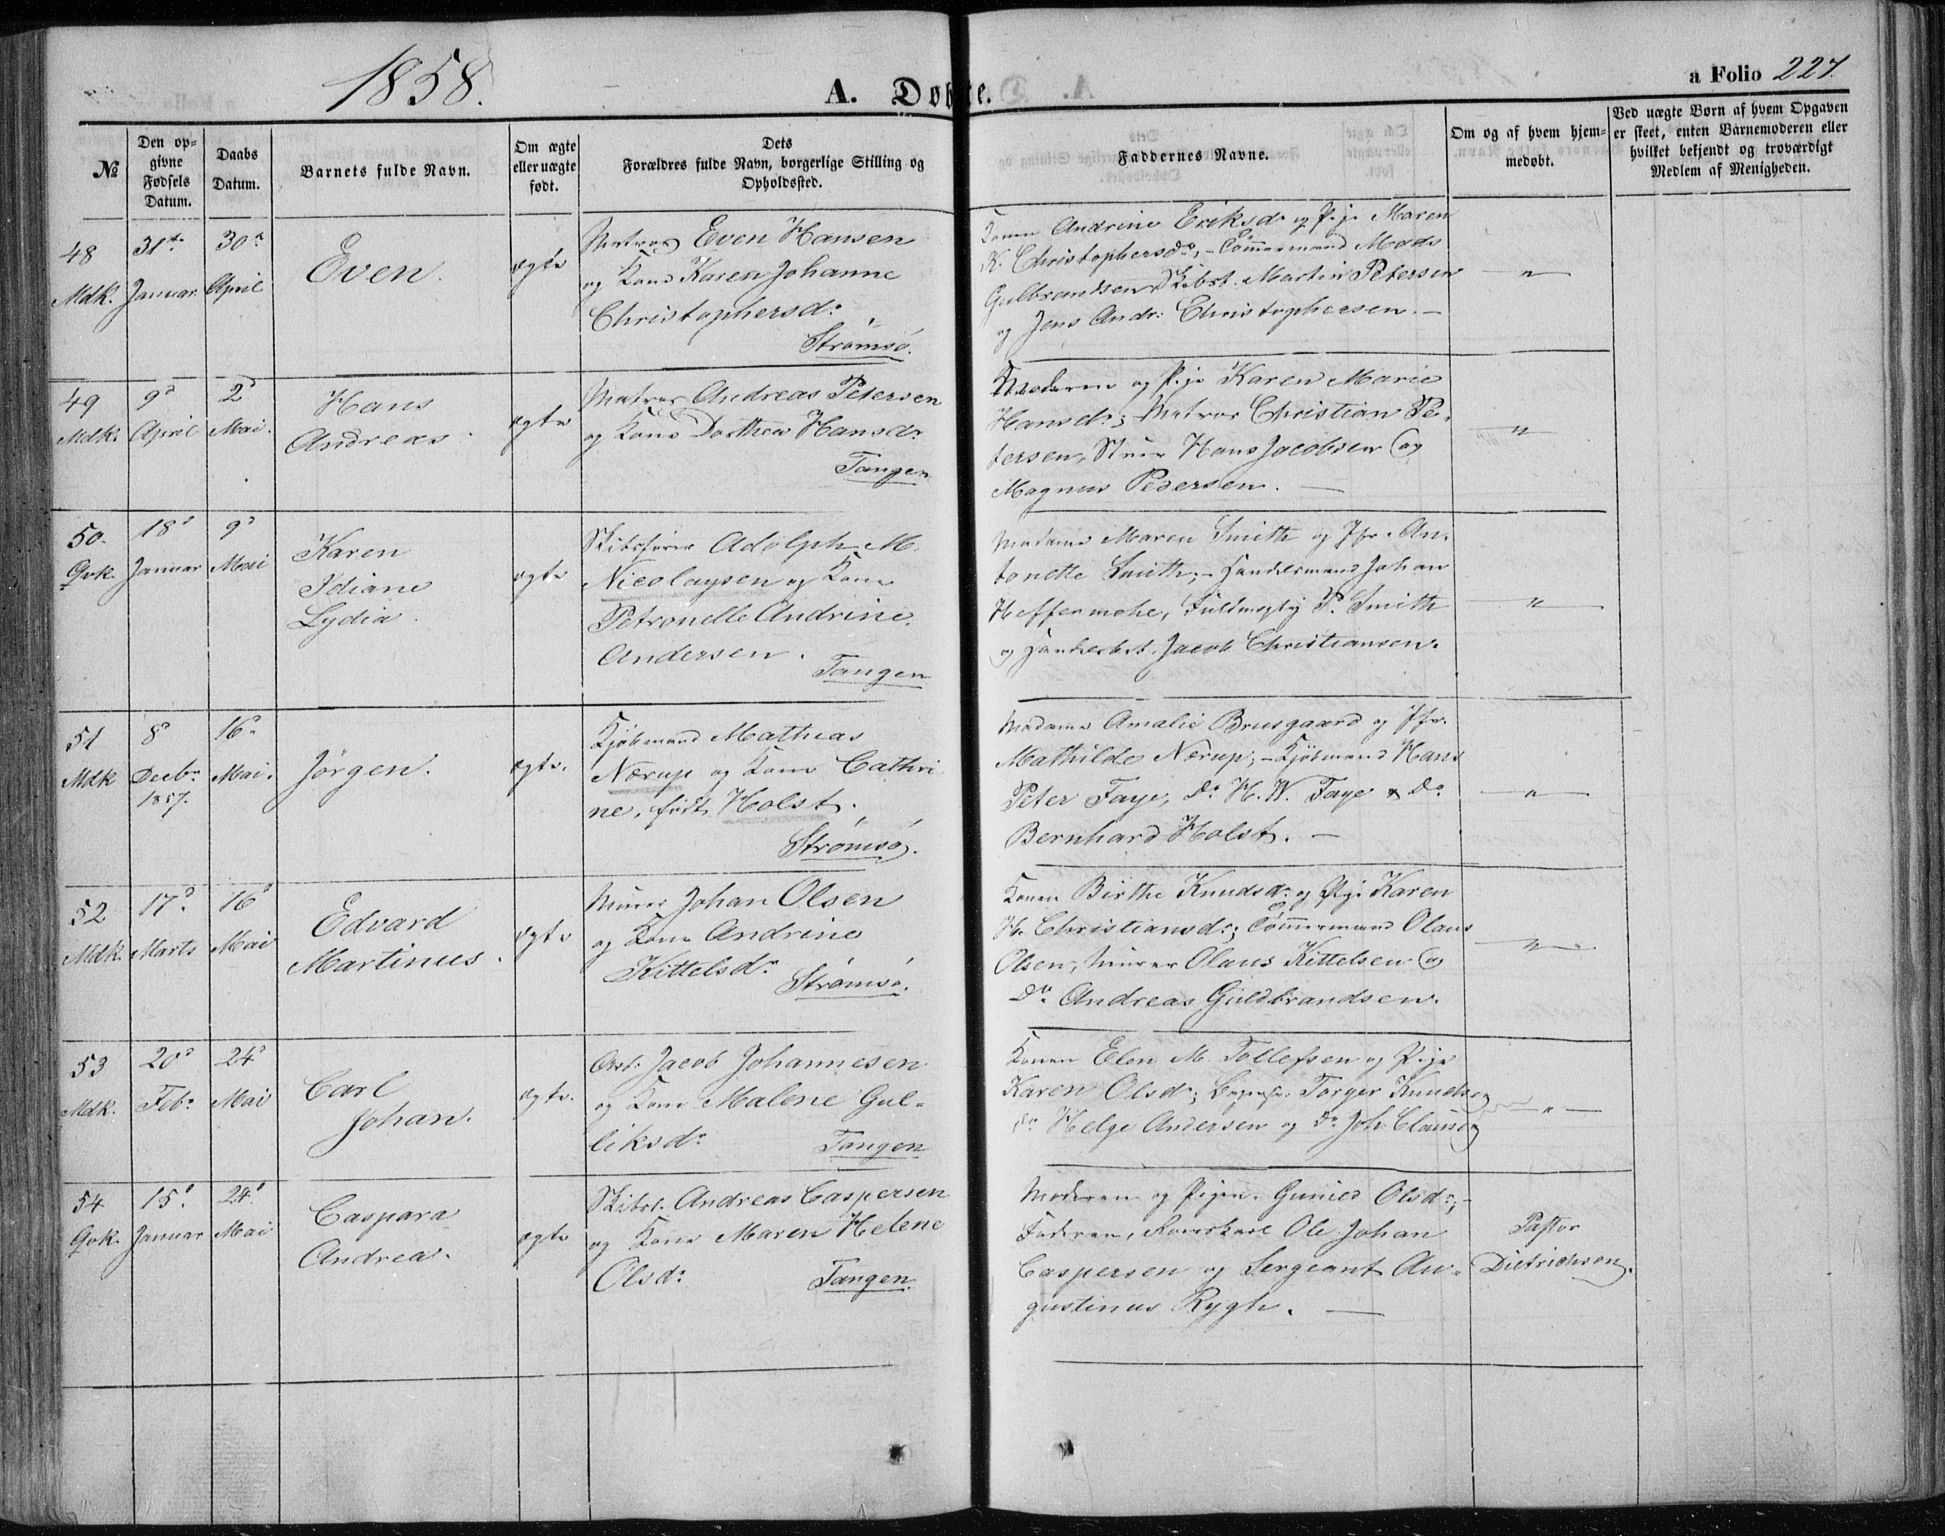 1858.
A. Døbte.
a Folio 227.
№
Den opgivne Fødsels Datum.
Daabs Datum.
Barnets fulde Navn.
Om ægte eller uægte født.
Dets Forældres fulde Navn, borgerlige Stilling og Opholdssted.
Faddernes Navne.
Om og af hvem hjemmedøbt.
Ved uægte Børn af hvem Opgaven er skeet, enten Barnemoderen eller hvilket bekjendt og troværdigt Medlem af Menigheden.
48
Mdk.
31te
Januar
30te
April
Even.
ægte
Matros Even Hansen
og Kone Karen Johanne
Christophersdr
Strømsø.
Konen Andrine Eriksdr og Pige Maren
K. Christophersdr, – Tømmermand Mads
Gulbrandsen, Skibst. Martin Petersen
og Jens Andr: Christophersen. –
– " –
49
Mdk.
9d
April
2d
Mai.
Hans
Andreas.
ægte
Matros Andreas Petersen
og Kone Dorthea Hansdr
Tangen
Moderen og Pige Karen Marie
Hansdr; Matros Christian Pe-
tersen, Stuer Hans Jacobsen og
Magnus Pedersen. –
– " –
50.
Qvk.
18d
Januar
9d
Mai
Karen
Idiane
Lydia.
ægte
Skibsfører Adolph M.
Nicolaysen og Kone
Petronelle Andrine
Andersen.
Tangen
Madame Maren Smith og Jfr. An-
tonette Smith; – Handelsmand Johan
Heffermehl, Fuldmægtig P. Smith
og Handelsbet. Jacob Christiansen.
– " –
51
Mdk
8d
Decbr
1857.
16d
Mai.
Jørgen.
ægte.
Kjøbmand Mathias
Nærup og Kone Cathri
ne, født Holst.
Strømsø.
Madame Amalie Brusgaard og Jfr.
Mathilde Nærup; – Kjøbmand Hans
Peter Faye, Do H. W. Faye & Do
Bernhard Holst. –
– " –
52
Mdk.
17d
Marts
16d
Mai
Edvard
Martinus.
ægte
Murer Johan Olsen
og Kone Andrine
Kittelsdr
Strømsø.
Konen Birthe Knudsdr og Pige Karen
H. Christiansdr; Tømmermand Olaus
Olsen, Murer Olaus Kittelsen og
Do Andreas Guldbrandsen.
– " –
53
Mdk.
20d
Febr
24d
Mai
Carl
Johan.
ægte.
Arb. Jacob Johannesen
og Kone Malene Gul-
liksdr
Tangen
Konen Elen M. Tollefsen og Pige
Karen Olsdr; Torger Knudsen
do Helge Andersen og Do Joh. Clausen
– " –
54
Qvk.
15d
Januar
24d
Mai
Caspara
Andrea.
ægte
Skibst. Andreas Caspersen
og Kone Maren Helene
Olsdr
Tangen
Moderen og Pigen Gunild Olsdr; –
Faderen, Ole Johan
Caspersen og Sergeant Au-
gustinus Rygh. –
Pastor
Dietrichson.